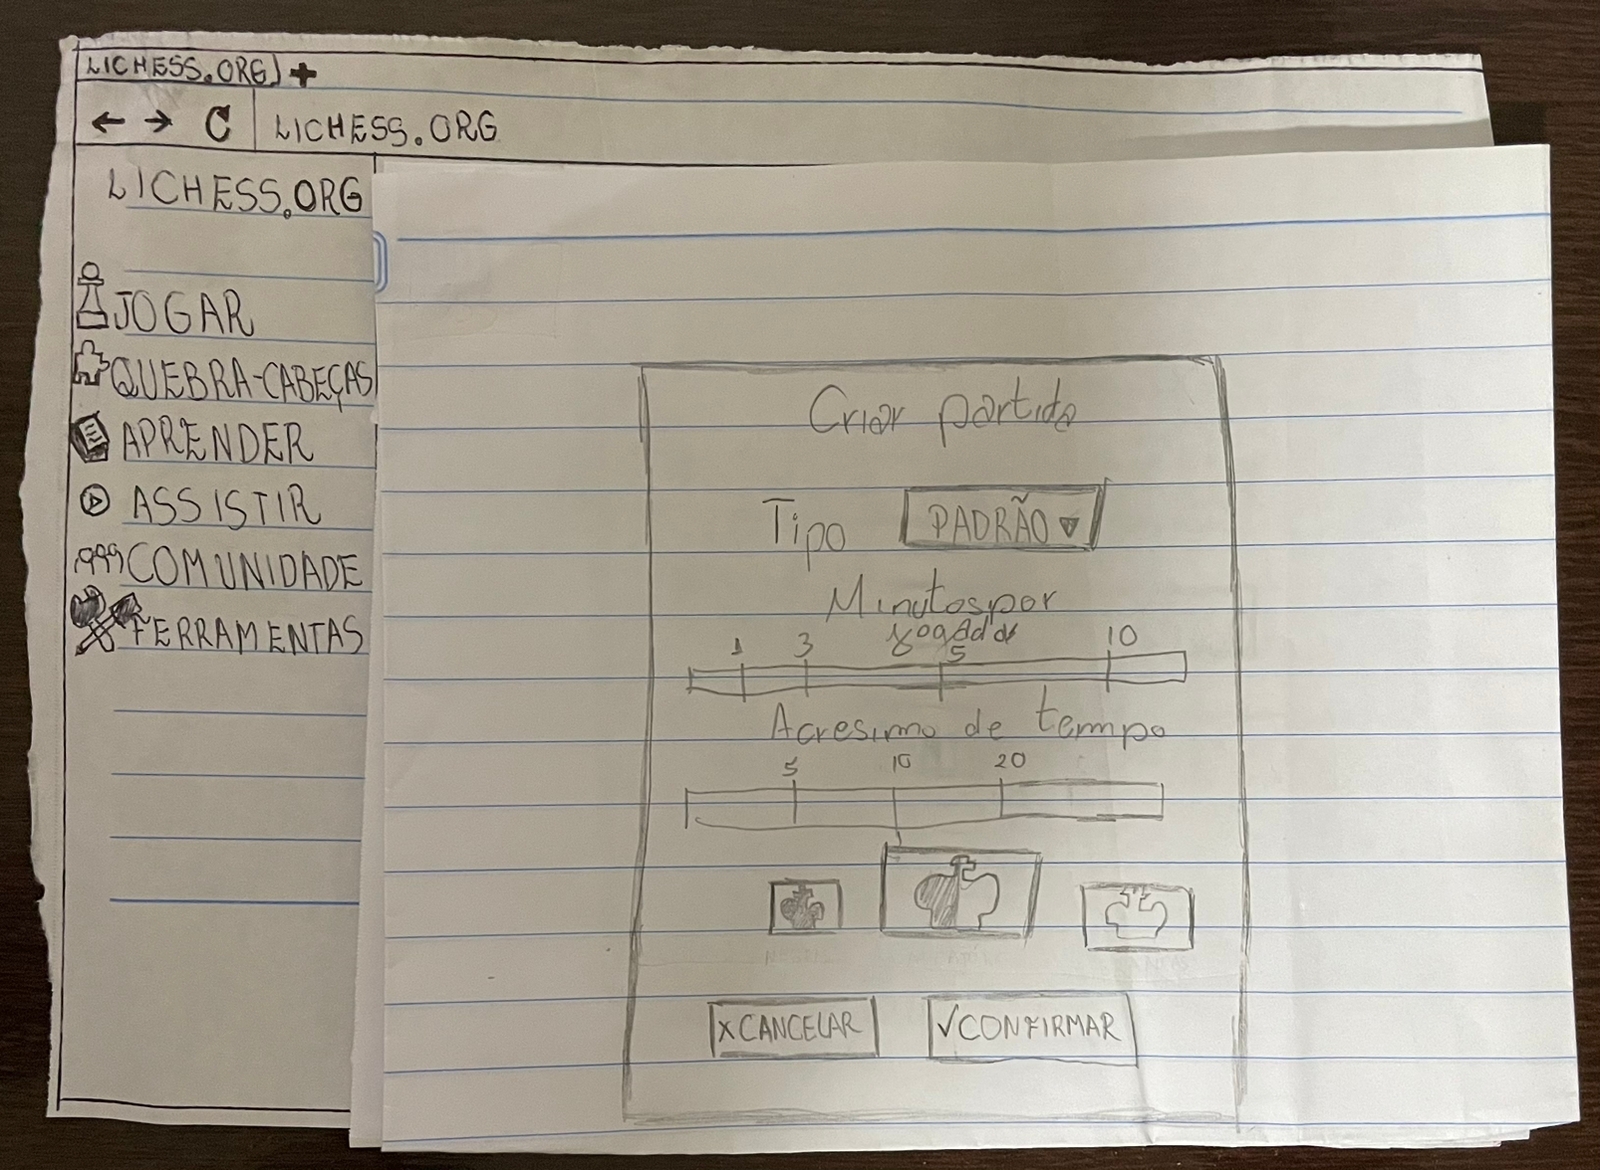 LICHESS.ORG +
LICHESS.ORG
LICHESS.ORG
JOGAR
QUEBRA-CABEÇAS
APRENDER
ASSISTIR
COMUNIDADE
FERRAMENTAS
Criar partida
Tipo PADRÃO
Minutos por
jogador
1 3 5 10
Acresimo de tempo
5 10 20
X CANCELAR ✓ CONFIRMAR